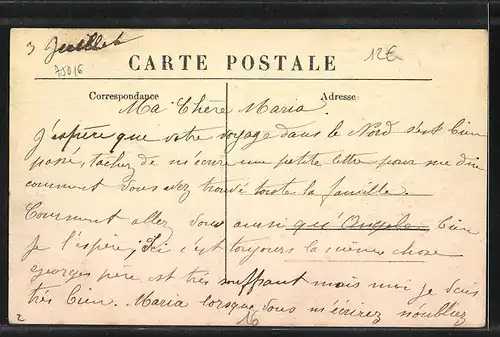 3 Juillet
75016
12€
CARTE POSTALE
Correspondance
Adresse
Ma Chère Maria.
J'espère que votre voyage dans le Nord s'est bien
passé, tachez de m'écrire une petite lettre pour me dire
comment vous avez trouvé toute la famille.
Comment allez vous ainsi qu'Angele bien
je l'espère; Ici c'est toujours la même chose
georges père est très souffrant mais moi je vais
très bien. Maria lorsque vous m'écrirez n'oubliez
16
2